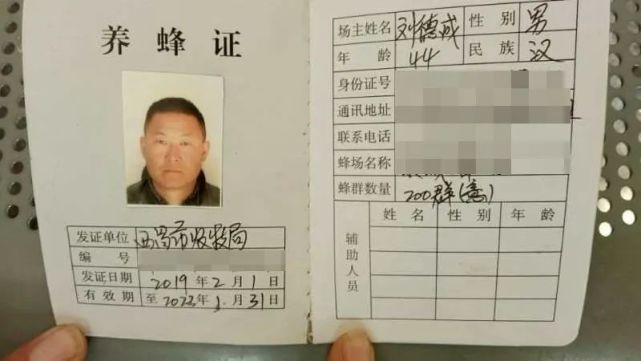 养蜂证
发证单位
编号
发证日期 2019年2月1日
有效期 至2022年1月31日
场主姓名 刘德成 性别 男
年龄 44 民族 汉
身份证号
通讯地址
联系电话
蜂场名称
蜂群数量 200群(意)
辅助人员
姓名 性别 年龄